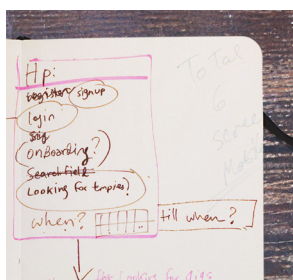 Hp:
register signup
login
Sig
onBoarding?
Search field
Looking for Empies?
when? till when?
To Tal
6
for Looking for gigs